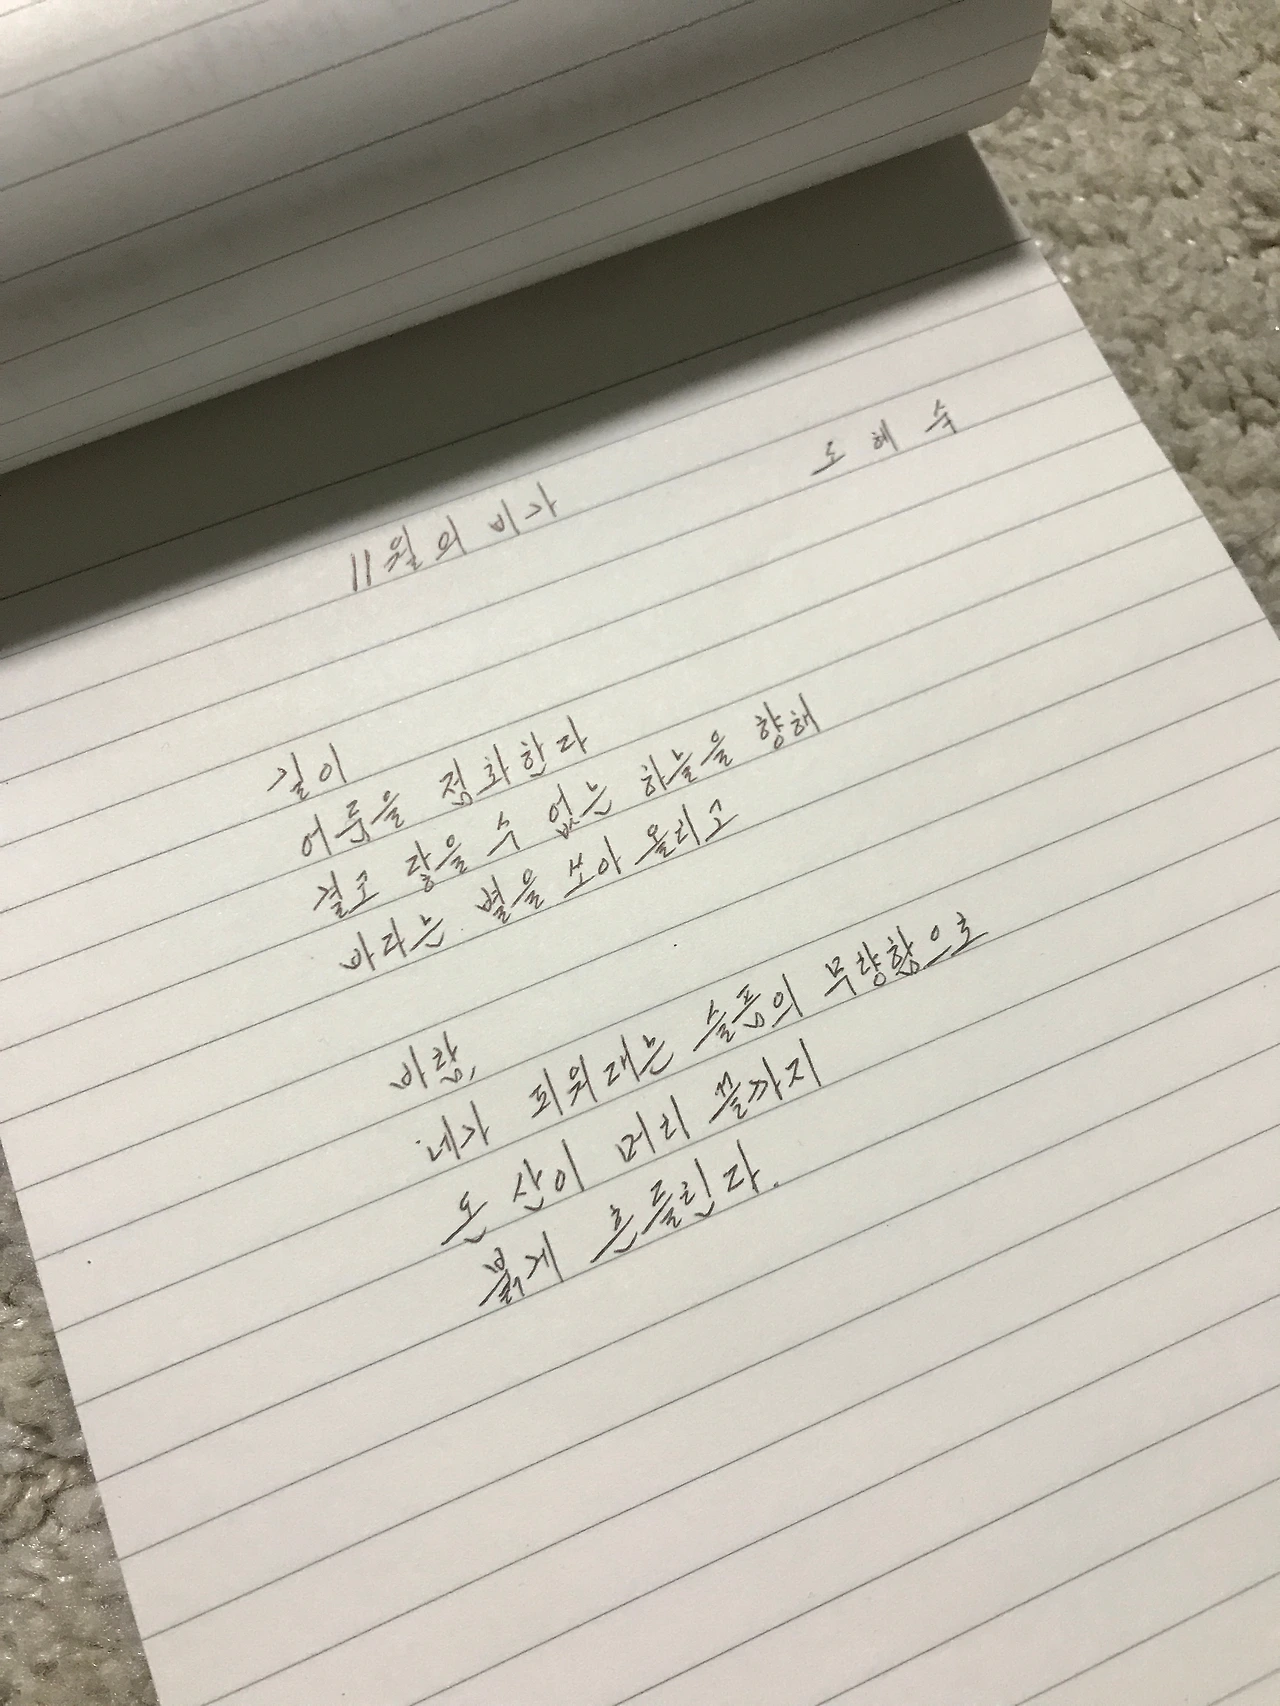 11월의 비가
도 혜 숙
길이
어둠을 점화한다
결코 닿을 수 없는 하늘을 향해
바다는 별을 쏘아 올리고
바람,
네가 피워대는 슬픔의 무량함으로
온 산이 머리 끝까지
붉게 흔들린다.